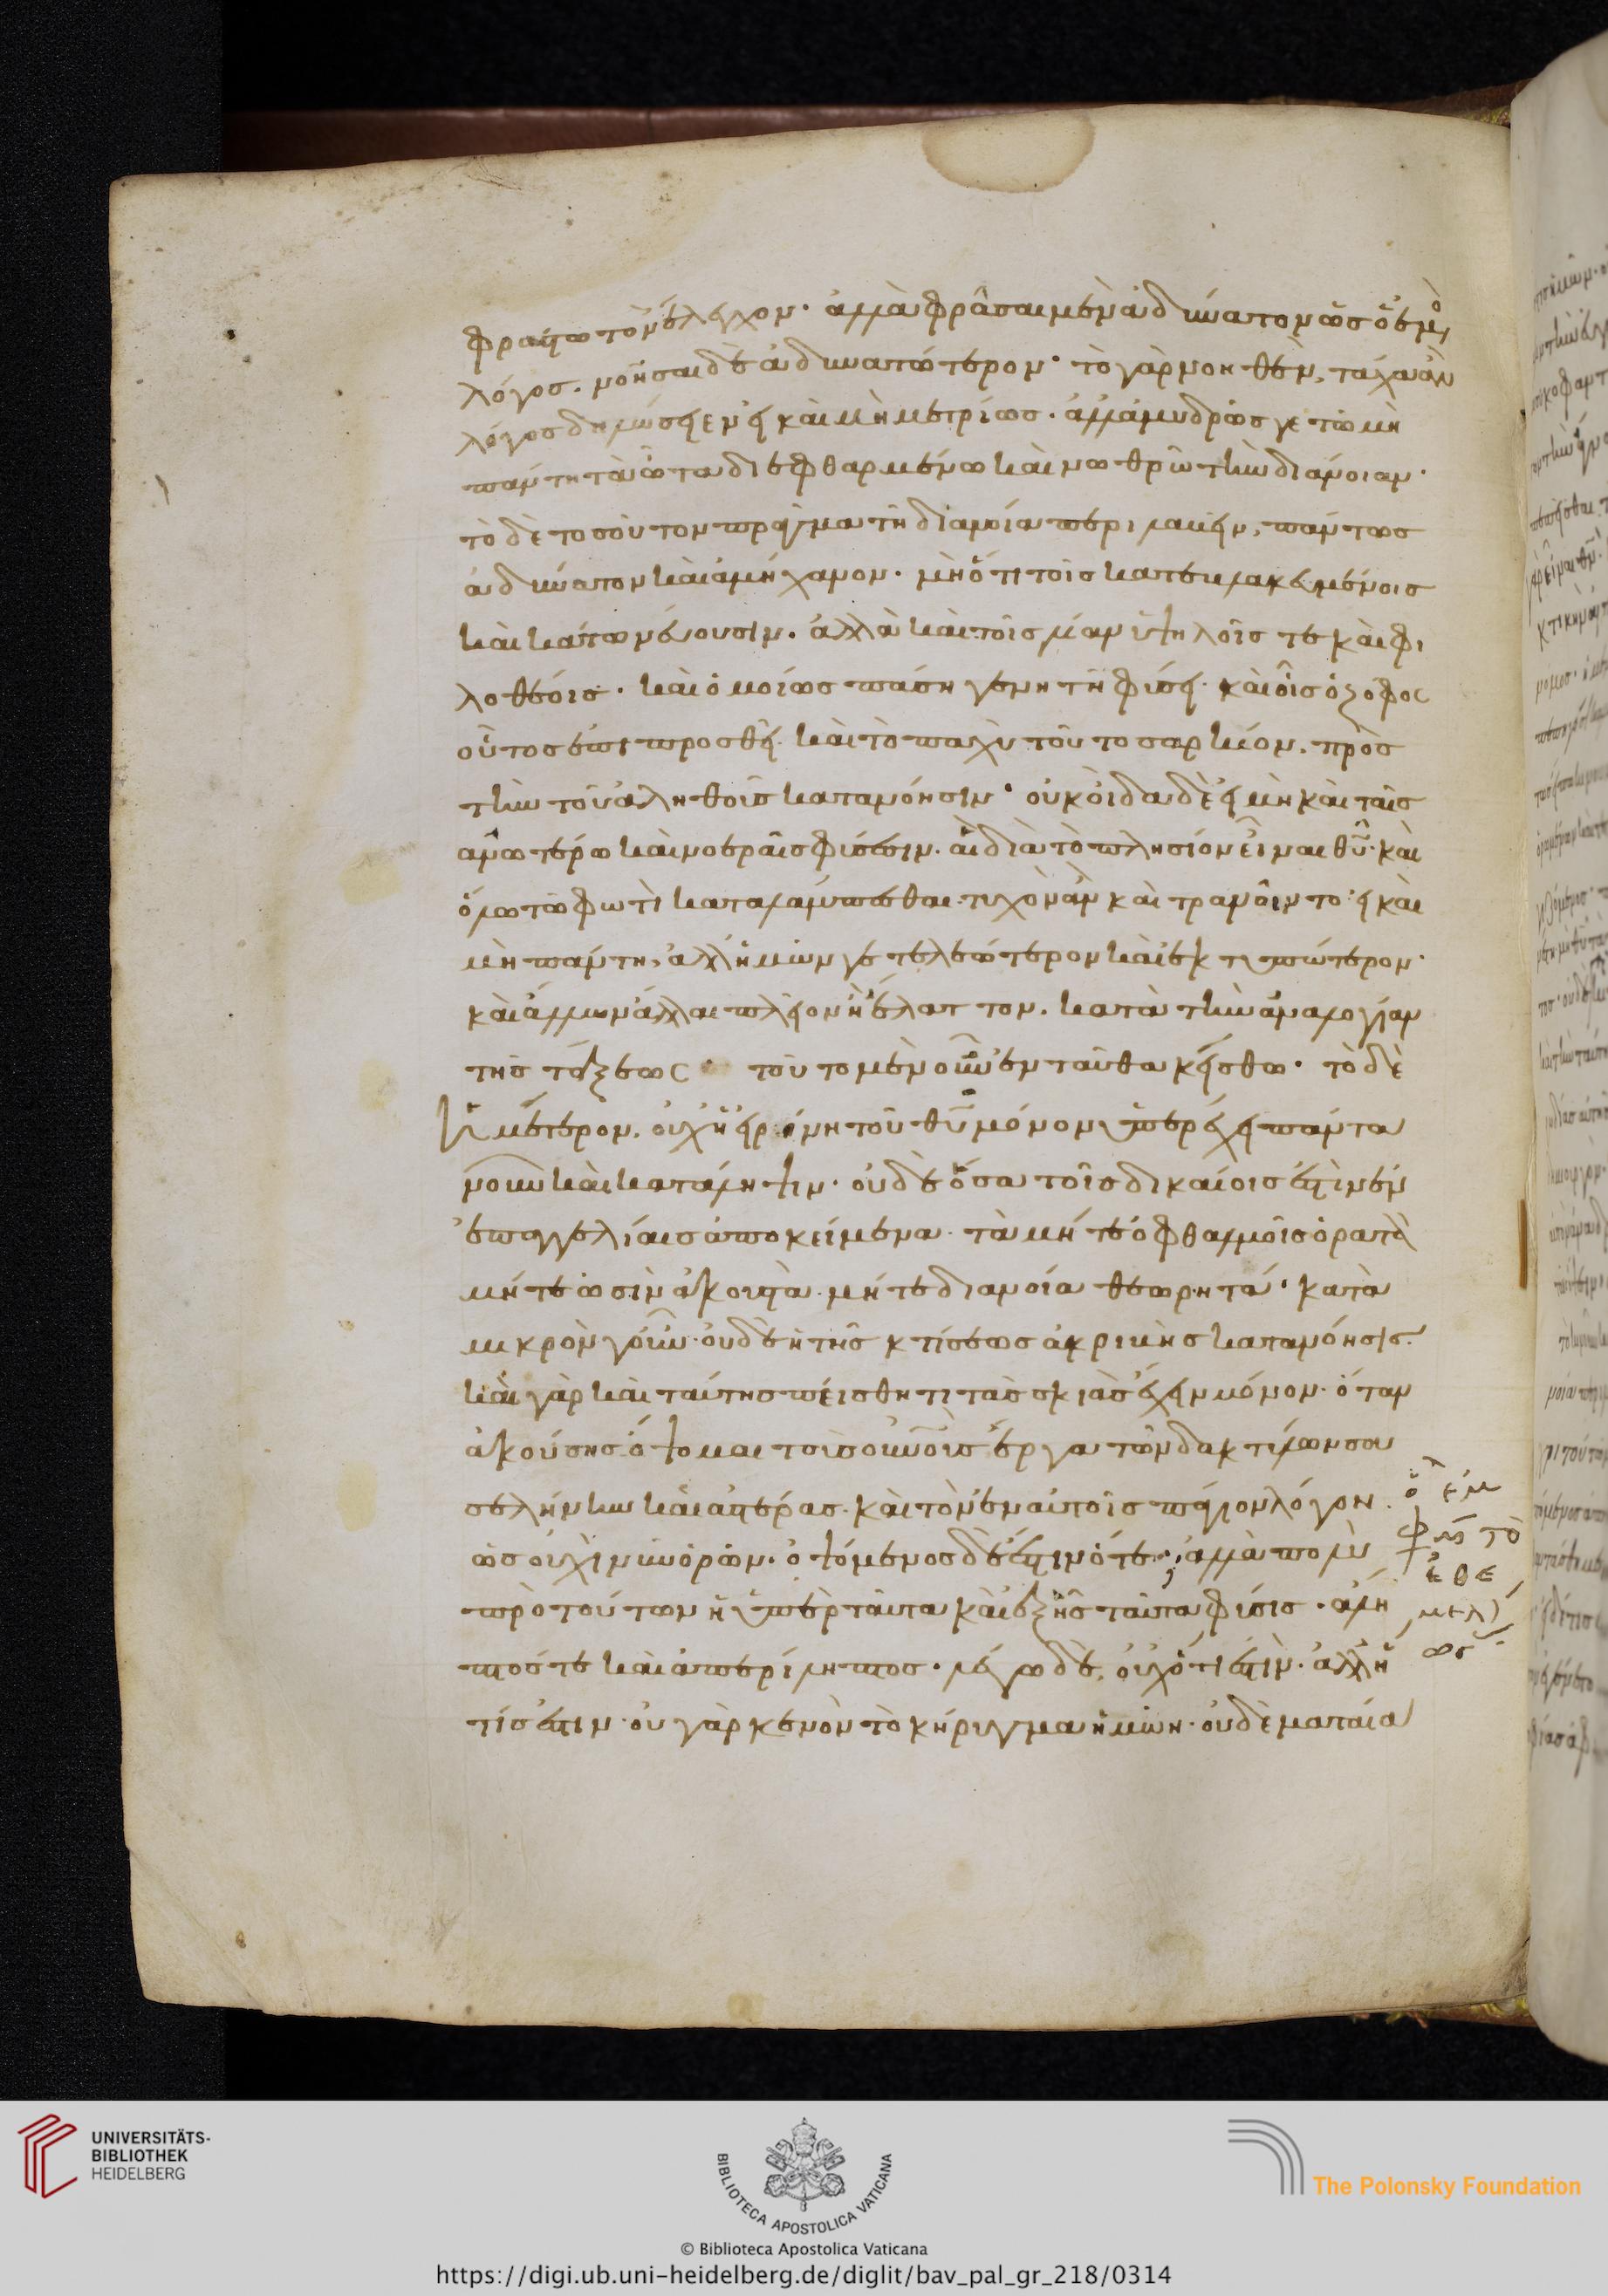 φράσει τὸν ἔλεγχον· ἀλλὰ φράσαι μὲν ἀδύνατον ὡς ὁ ἐμὸ
λόγος. νοῆσαι δὲ ἀδυνατώτερον· τὸ γὰρ νοηθὲν, τάχα ἂν
λόγος δηλώσειεν εἰ καὶ μὴ μετρίως. ἀλλ' ἀμυδρῶς γε τῶ μὴ
πάντη τὰ ὦτα διεφθαρμένω καὶ νωθρῶ τὴν διάνοιαν·
τὸ δὲ τοσοῦτον πρᾶγμα τῆ διανοία περιλαβεῖν, πάντως
ἀδύνατον καὶ ἀμήχανον. μὴ ὅτι τοῖς κατεβλακευμένοις
καὶ κάτω νεύουσιν. ἀλλὰ καὶ τοῖς λίαν ὑψηλοῖς τε καὶ φι
λοθέοις. καὶ ὁμοίως πάση γενητῆ φύσει· καὶ οἷς ὁ ζόφος
οὗτος ἐπιπροσθεῖ. καὶ τὸ παχὺ τοῦτο σαρκίον, πρὸς
τὴν τοῦ ἀληθοῦς κατανόησιν· οὐκ οἶδα δὲ εἰ μὴ καὶ ταῖς
ἀνωτέρω καὶ νοεραῖς φύσεσιν. αἳ διὰ τὸ πλησίον εἶναι θυ. καὶ
ὅλω τῶ φωτὶ καταλάμπεσθαι. τυχὸν ἂν καὶ τρανοῖντο· εἰ καὶ
μὴ πάντη, ἀλλ' ἡμῶν γε τελεώτερον καὶ ἐκτυπώτερον·
καὶ ἄλλων ἄλλαι πλεῖον ἢ ἔλαττον. κατὰ τὴν ἀναλογίαν
τῆς τάξεως· τοῦτο μὲν οὖν ἐνταῦθα κείσθω· τὸ δὲ
ἡμέτερον, οὐχ ἡ εἰρήνη τοῦ θυ μόνον ὑπερέχει πάντα
νοῦν καὶ κατάληψιν. οὐδὲ ὅσα τοῖς δικαίοις ἐστὶν ἐν
ἐπαγγελίαις ἀποκείμενα. τὰ μήτε ὀφθαλμοῖς ὁρατὰ
μήτε ὠσὶν ἀκουστὰ. μήτε διανοία θεωρητά· κατὰ
μικρὸν γοῦν. οὐδὲ ἡ τῆς κτίσεως ἀκριβὴς κατανόησις.
καὶ γὰρ καὶ ταύτης πείσθητι τὰς σκιὰς ἔχειν μόνον. ὅταν
ἀκούσης ὄψομαι τοὺς οὐνοὺς ἔργα τῶν δακτύλων σου
σελήνην καὶ ἀστέρας. καὶ τὸν ἐν αὐτοῖς πάγιον λόγον.
ὡς οὐχὶ νῦν ὁρῶν. ὀψόμενος δὲ ἔστιν ὅτε· ἀλλὰ πολὺ
πρὸ τούτων ἡ ὑπὲρ ταῦτα καὶ ἐξ ἧς ταῦτα φύσις. ἄλη
πτός τε καὶ ἀπερίληπτος. λέγω δὲ, οὐχ ὅτι ἐστὶν. ἀλλ' ἥ
τίς ἐστιν. οὐ γὰρ κενὸν τὸ κήρυγμα ἡμῶν. οὐδὲ ματαία
UNIVERSITÄTS-
BIBLIOTHEK
HEIDELBERG
BIBLIOTECA APOSTOLICA VATICANA
The Polonsky Foundation
© Biblioteca Apostolica Vaticana
https://digi.ub.uni-heidelberg.de/diglit/bav_pal_gr_218/0314